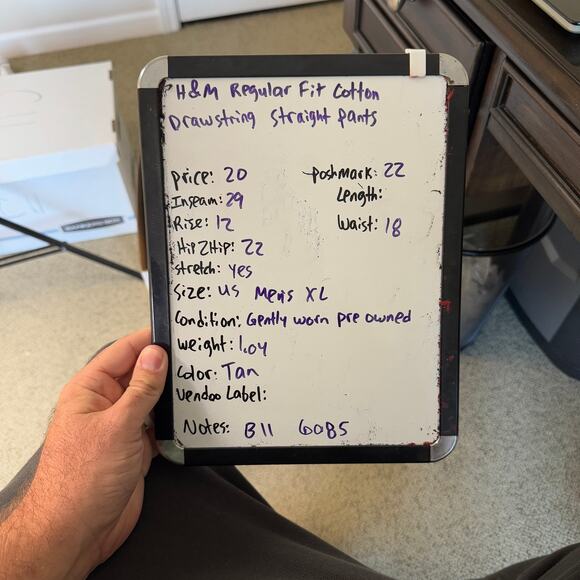 H&M Regular Fit Cotton
Drawstring Straight Pants
Price: 20 Poshmark: 22
Inseam: 29 Length:
Rise: 12 Waist: 18
Hip2Hip: 22
Stretch: Yes
Size: US Men's XL
Condition: Gently worn pre owned
Weight: 1.04
Color: Tan
Vendoo Label:
Notes: B11 60B5